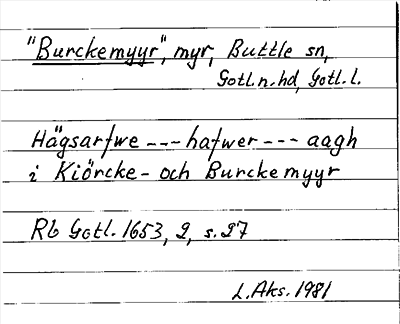 "Burckemyyr", myr, Buttle sn,
Gotl.n.hd, Gotl.l.
Hägsarfwe --- hafwer --- aagh
i Kiörcke- och Burckemyyr
Rb Gotl. 1653, 2, s.27
L.Aks. 1981